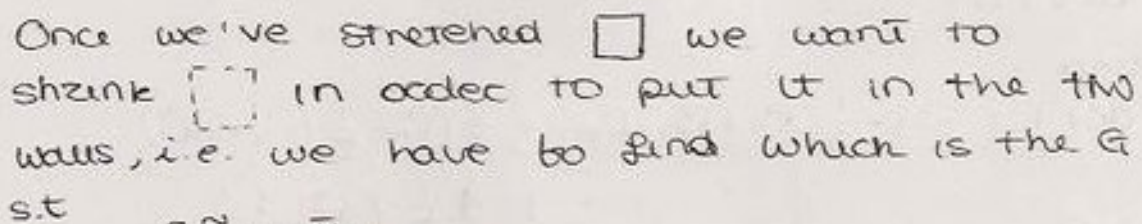 Once we've stretched □ we want to
shrink in order to put it in the two
walls, i.e. we have to find which is the G
s.t